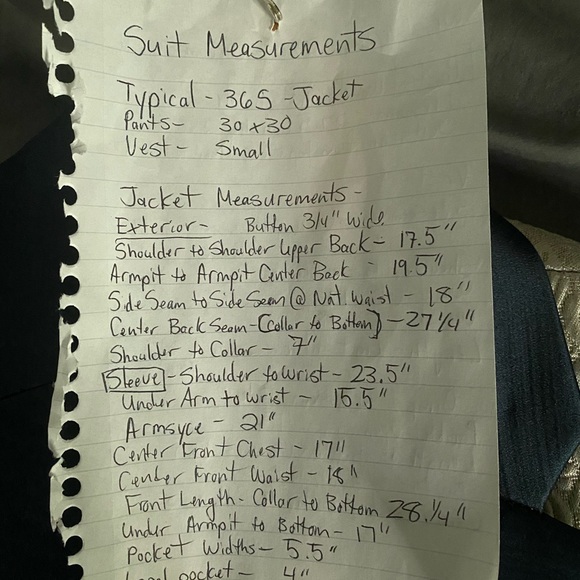 Suit Measurements
Typical - 36S - Jacket
Pants - 30 x 30
Vest - Small
Jacket Measurements -
Exterior - Button 3/4" Wide
Shoulder to Shoulder Upper Back - 17.5"
Armpit to Armpit Center Back - 19.5"
Side Seam to Side Seam @ Nat. Waist - 18"
Center Back Seam - (Collar to Bottom) - 27 1/4"
Shoulder to Collar - 7"
Sleeve - Shoulder to Wrist - 23.5"
Under Arm to Wrist - 15.5"
Armsyce - 21"
Center Front Chest - 17"
Center Front Waist - 18"
Front Length - Collar to Bottom 28.1/4"
Under Armpit to Bottom - 17"
Pocket Widths - 5.5"
pocket - 4"